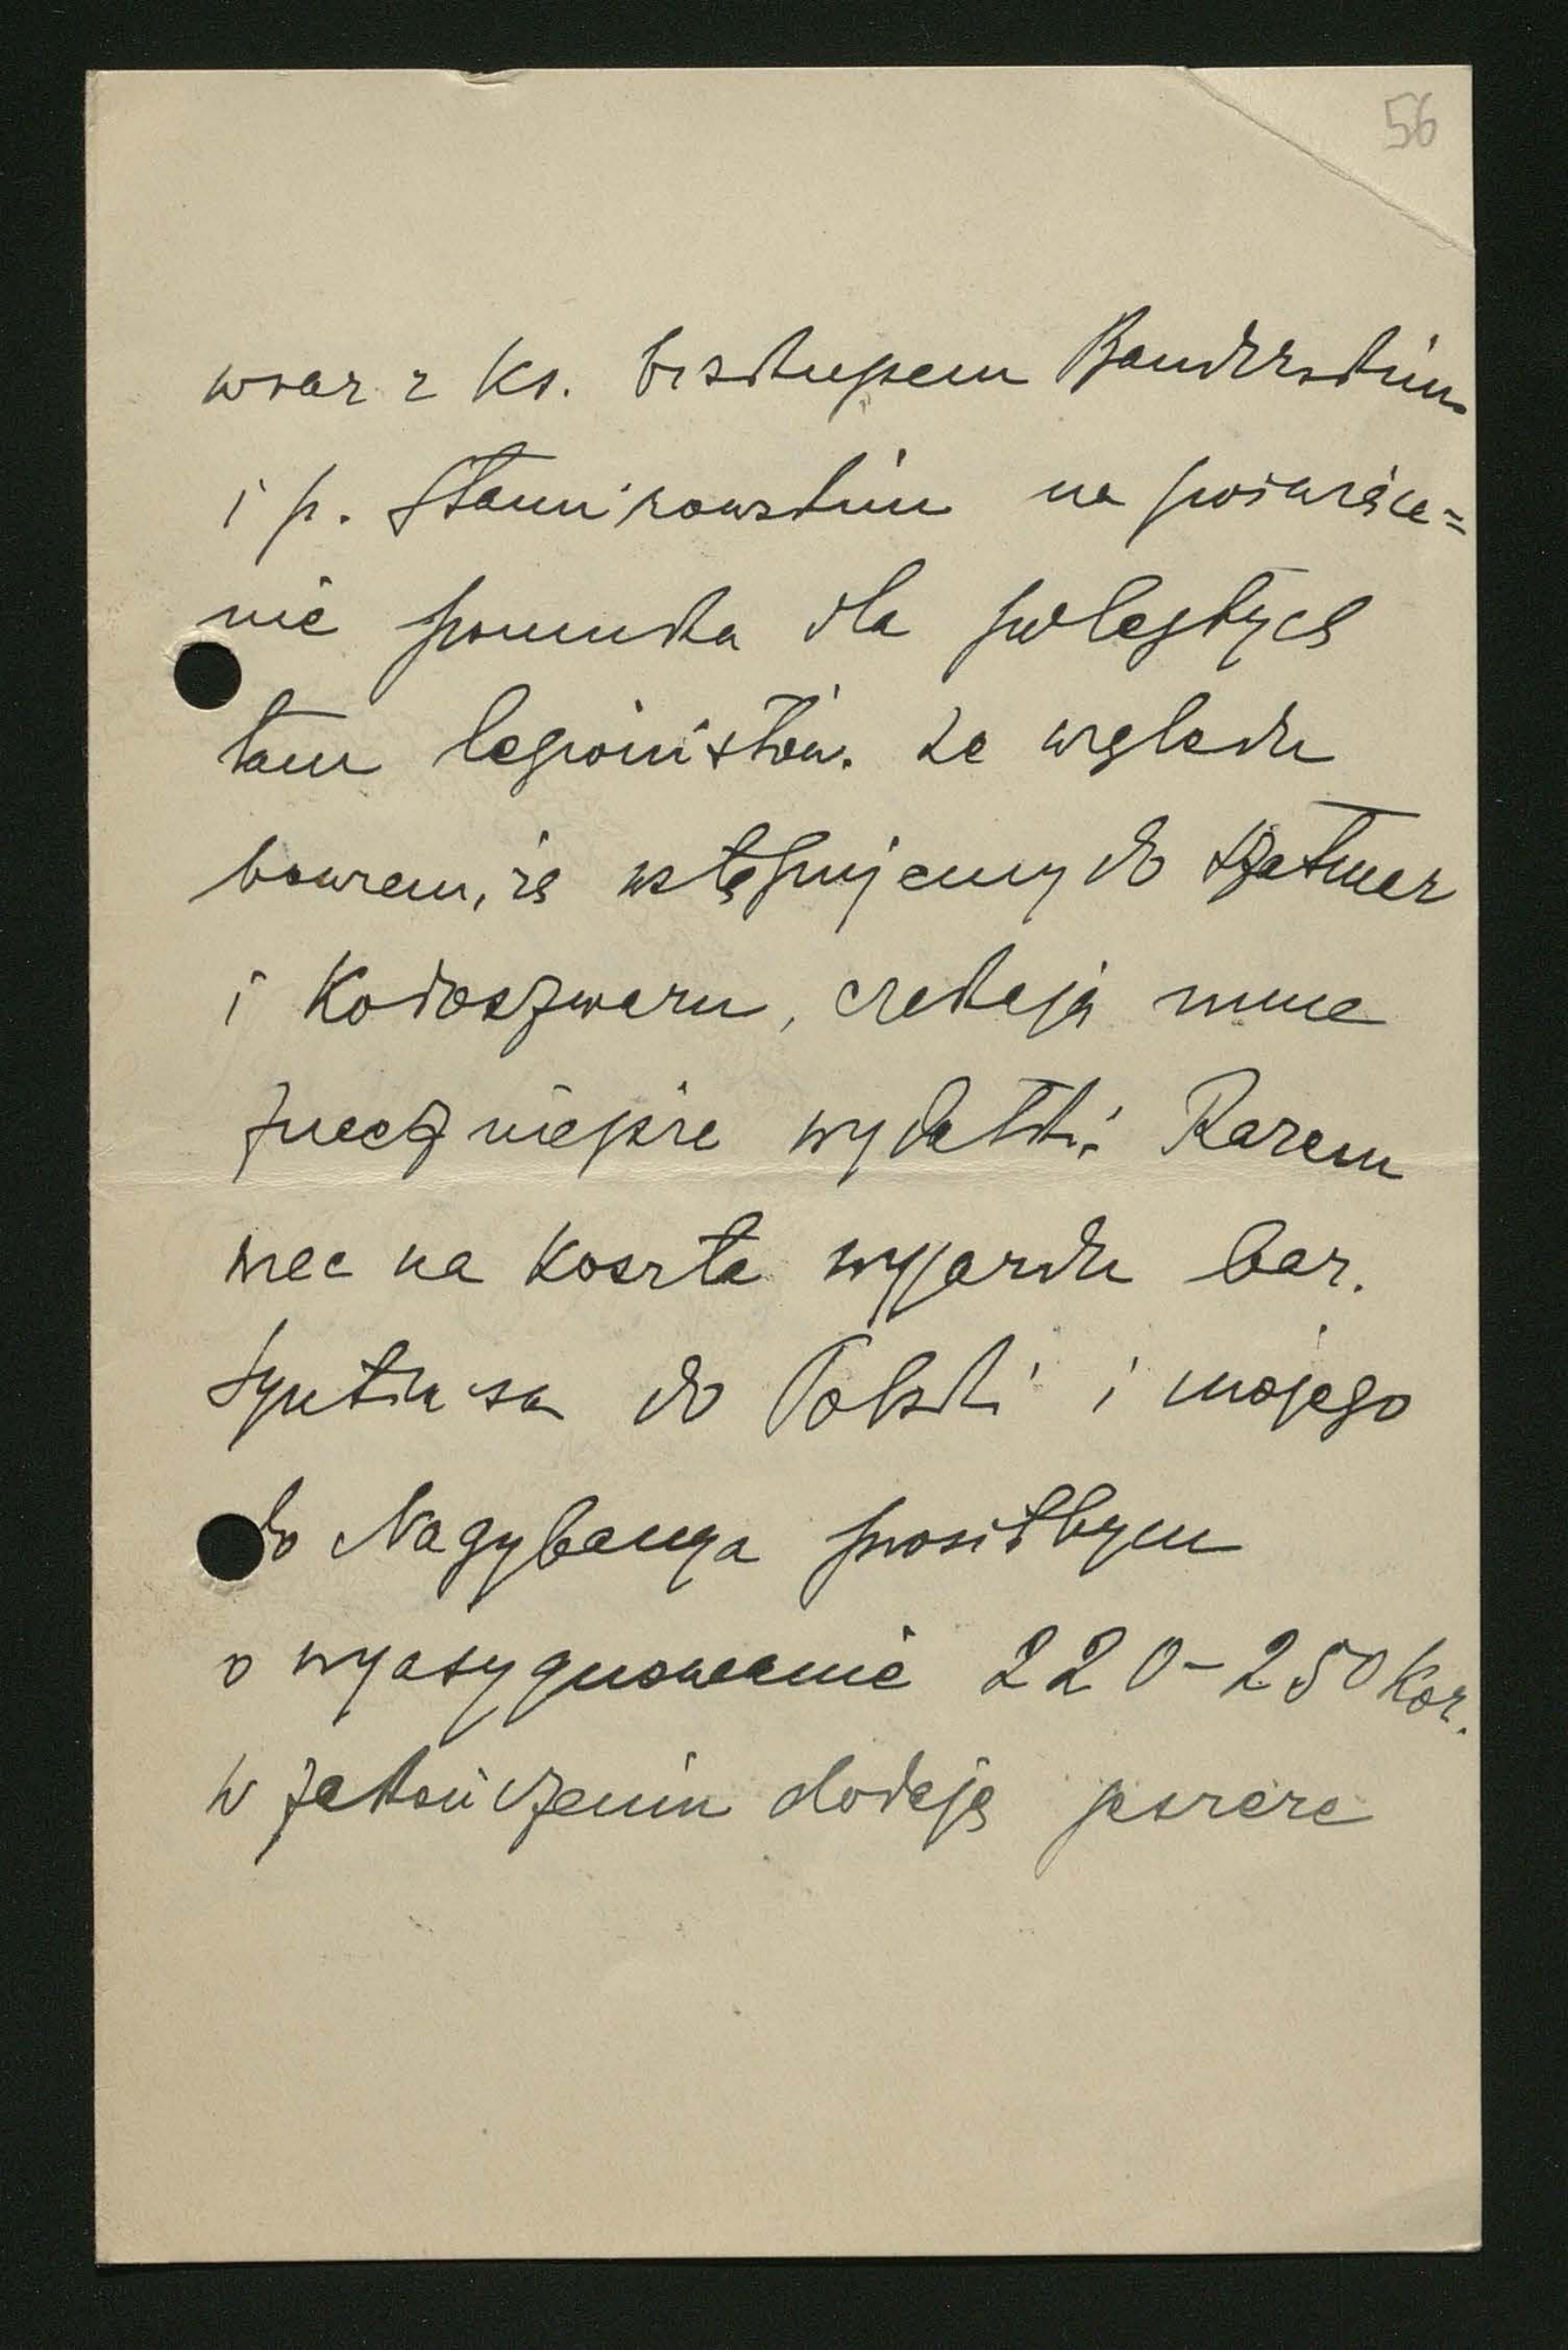 56
wraz z Ks. biskupem Bandurskim
i p. Stamirowskim na poświęce=
nie pomnika dla poległych
tam legionistów. Ze względu
bowiem, iż wstępujemy do Szatmar
i Kolozswaru, czekają mnie
znaczniejsze wydatki. Razem
więc na koszta wyjazdu bar.
do Polski i mojego
do Nagybanya prosiłbym
o wyasygnowanie 220-250 Kor.
W zakończeniu dodaję jeszcze